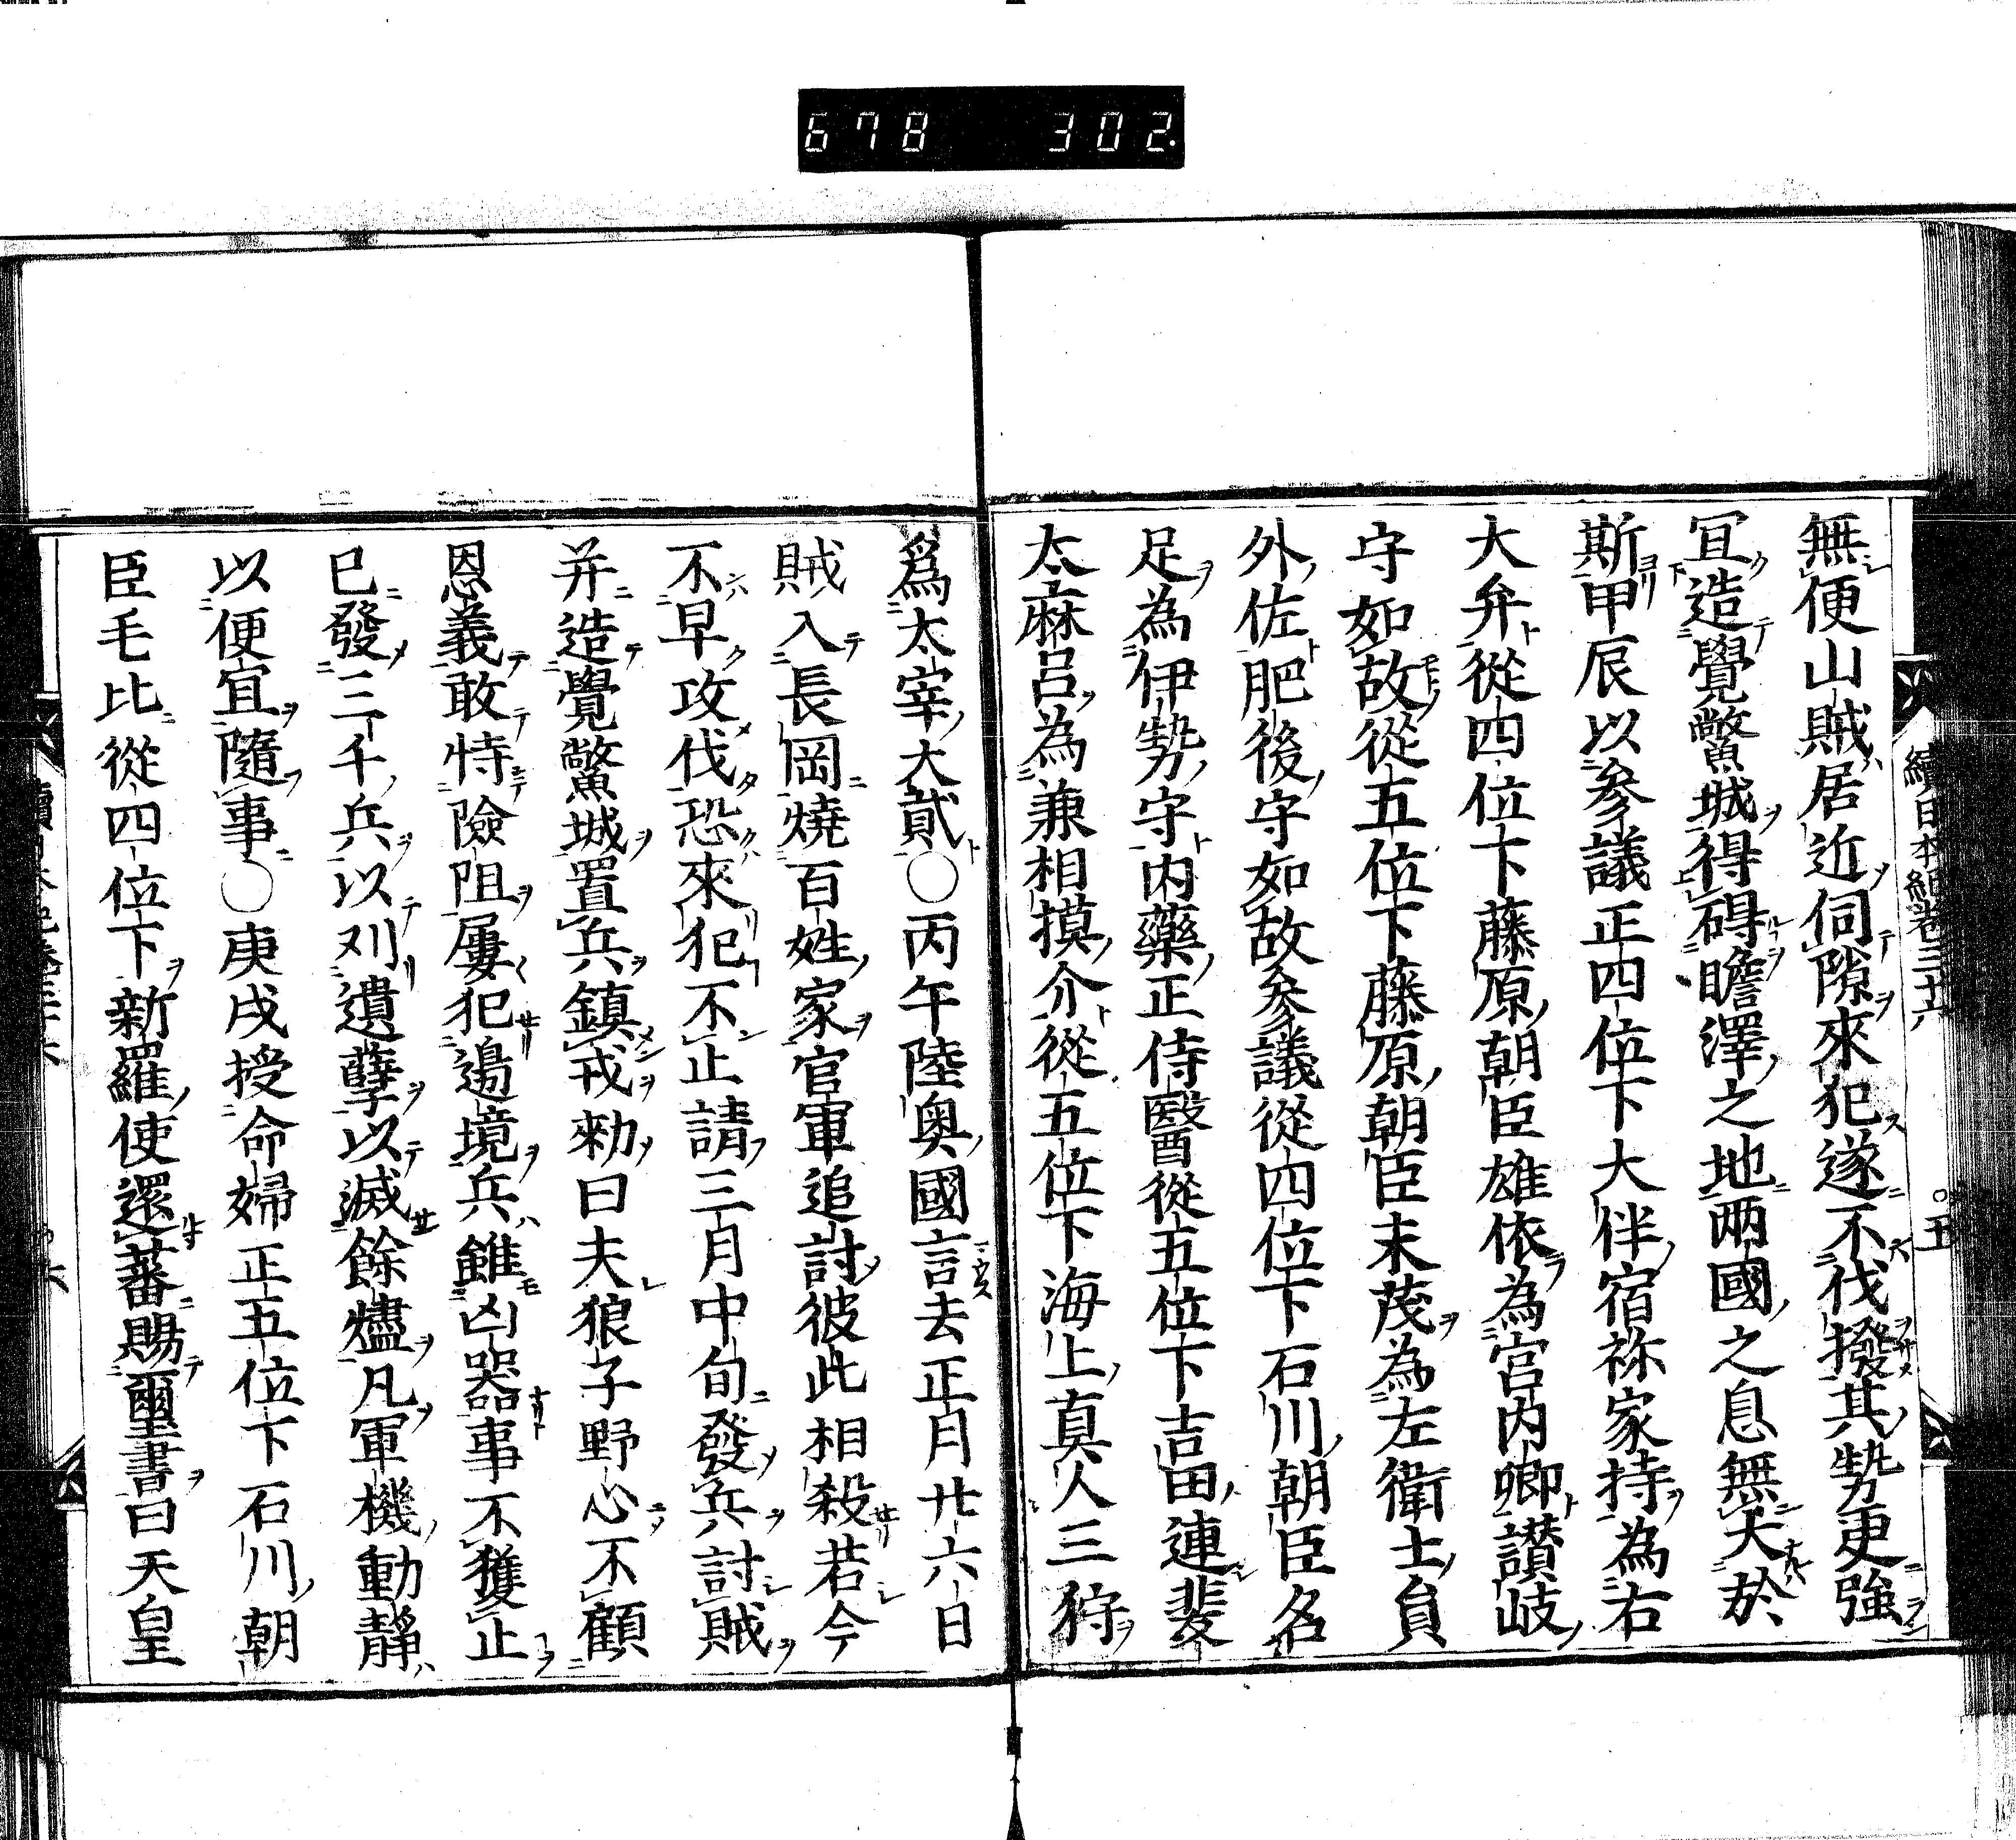 678 302.
續日本紀卷三十六
五
無便山賊居近伺隙來犯遂不伐撥其勢更強
宜造覺鱉城得碍瞻澤之地兩國之息無大於
斯甲辰以參議正四位下大伴宿祢家持為右
大弁從四位下藤原朝臣雄依為宮内卿讃岐
守如故從五位下藤原朝臣末茂為左衛士員
外佐肥後守如故參議從四位下石川朝臣名
足為伊勢守内藥正侍醫從五位下吉田連斐
太麻呂為兼相摸介從五位下海上真人三狩
爲太宰大貳○丙午陸奥國言去正月廿六日
賊入長岡燒百姓家官軍追討彼此相殺若今
不早攻伐恐來犯不止請三月中旬發兵討賊
并造覺鱉城置兵鎮戍勅曰夫狼子野心不顧
恩義敢恃險阻屢犯邊境兵雖凶器事不獲止
已發三千兵以刈遺孽以滅餘燼凡軍機動靜
以便宜隨事○庚戌授命婦正五位下石川朝
臣毛比從四位下新羅使還蕃賜璽書曰天皇